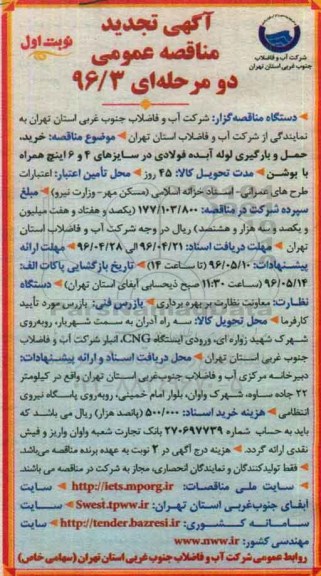 آگهی تجدید
مناقصه عمومی
دو مرحله‌ای ۹۶/۳
نوبت اول
شرکت آب و فاضلاب
جنوب غربی استان تهران
دستگاه مناقصه‌گزار: شرکت آب و فاضلاب جنوب غربی استان تهران به
نمایندگی از شرکت آب و فاضلاب استان تهران موضوع مناقصه: خرید،
حمل و بارگیری لوله آبده فولادی در سایزهای ۴ و ۶ اینچ همراه
با بوشن مدت تحویل کالا: ۴۵ روز محل تأمین اعتبار: اعتبارات
طرح های عمرانی- اسناد خزانه اسلامی (مسکن مهر- وزارت نیرو) مبلغ
سپرده شرکت در مناقصه: ۱۷۷/۱۰۳/۸۰۰ (یکصد و هفتاد و هفت میلیون
و یکصد و سه هزار و هشتصد) ریال در وجه شرکت آب و فاضلاب استان
تهران مهلت دریافت اسناد: ۹۶/۰۴/۲۱ الی ۹۶/۰۴/۲۸ مهلت ارائه
پیشنهادات: ۹۶/۰۵/۱۰ (تا ساعت ۱۴) تاریخ بازگشایی پاکات الف:
۹۶/۰۵/۱۴ (ساعت ۱۱:۳۰ صبح ذیحسابی آبفای استان تهران) دستگاه
نظارت: معاونت نظارت بر بهره برداری بازرس فنی: بازرس مورد تأیید
کارفرما محل تحویل کالا: سه راه آدران به سمت شهریار، روبه‌روی
شهرک شهید زواره ای، ورودی ایستگاه CNG، انبار شرکت آب و فاضلاب
جنوب غربی استان تهران محل دریافت اسناد و ارائه پیشنهادات:
دبیرخانه مرکزی آب و فاضلاب جنوب‌غربی استان تهران واقع در کیلومتر
۲۲ جاده ساوه، شهرک واوان، بلوار امام خمینی، روبه‌روی پاسگاه نیروی
انتظامی هزینه خرید اسناد: ۵۰۰/۰۰۰ (پانصد هزار) ریال می باشد که
باید به حساب شماره ۲۷۰۶۹۷۷۳۹ بانک تجارت شعبه واوان واریز و فیش
نقدی ارائه گردد. هزینه درج آگهی در ۲ نوبت به عهده برنده مناقصه می‌باشد.
فقط تولیدکنندگان و نمایندگان انحصاری، مجاز به شرکت در مناقصه می باشند.
سایت ملی مناقصات: http://iets.mporg.ir سایت
آبفای جنوب‌غربی استان تهران: Swest.tpww.ir سایت
سامانه کشوری: http://tender.bazresi.ir سایت
مهندسی کشور: www.nww.ir
روابط عمومی شرکت آب و فاضلاب جنوب غربی استان تهران (سهامی خاص)